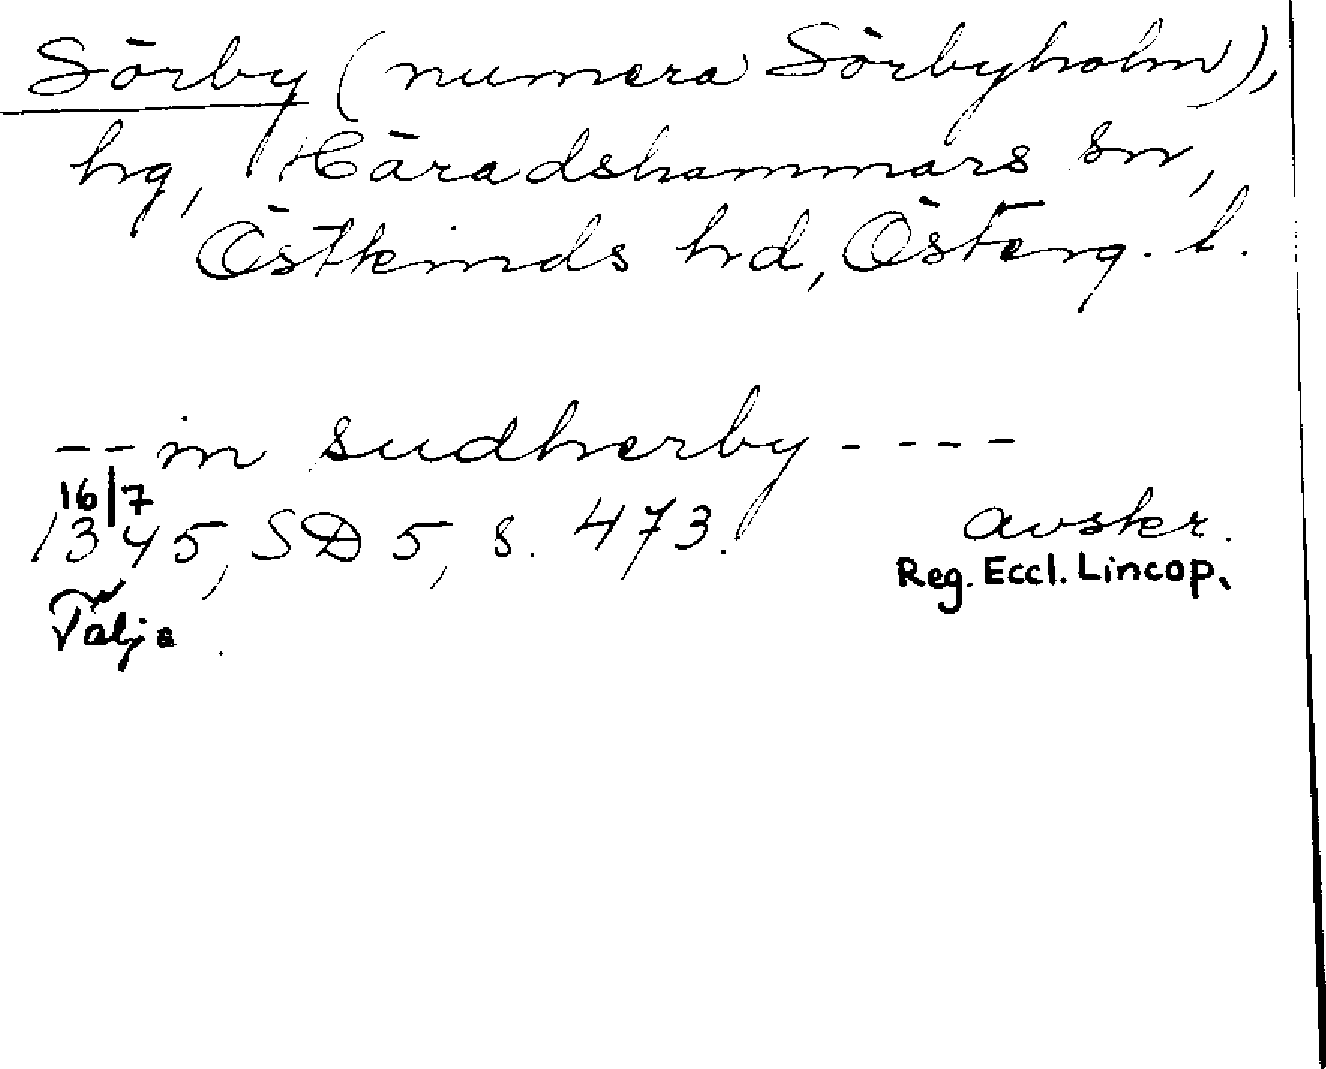 Sörby (numera Sörbyholm),
hg, Häradshammars sn,
Östkinds hd, Österg. l.
-- in sudherby ----
16/7
1345, SD 5, s. 473. avskr.
Reg. Eccl. Lincop.
Tälje